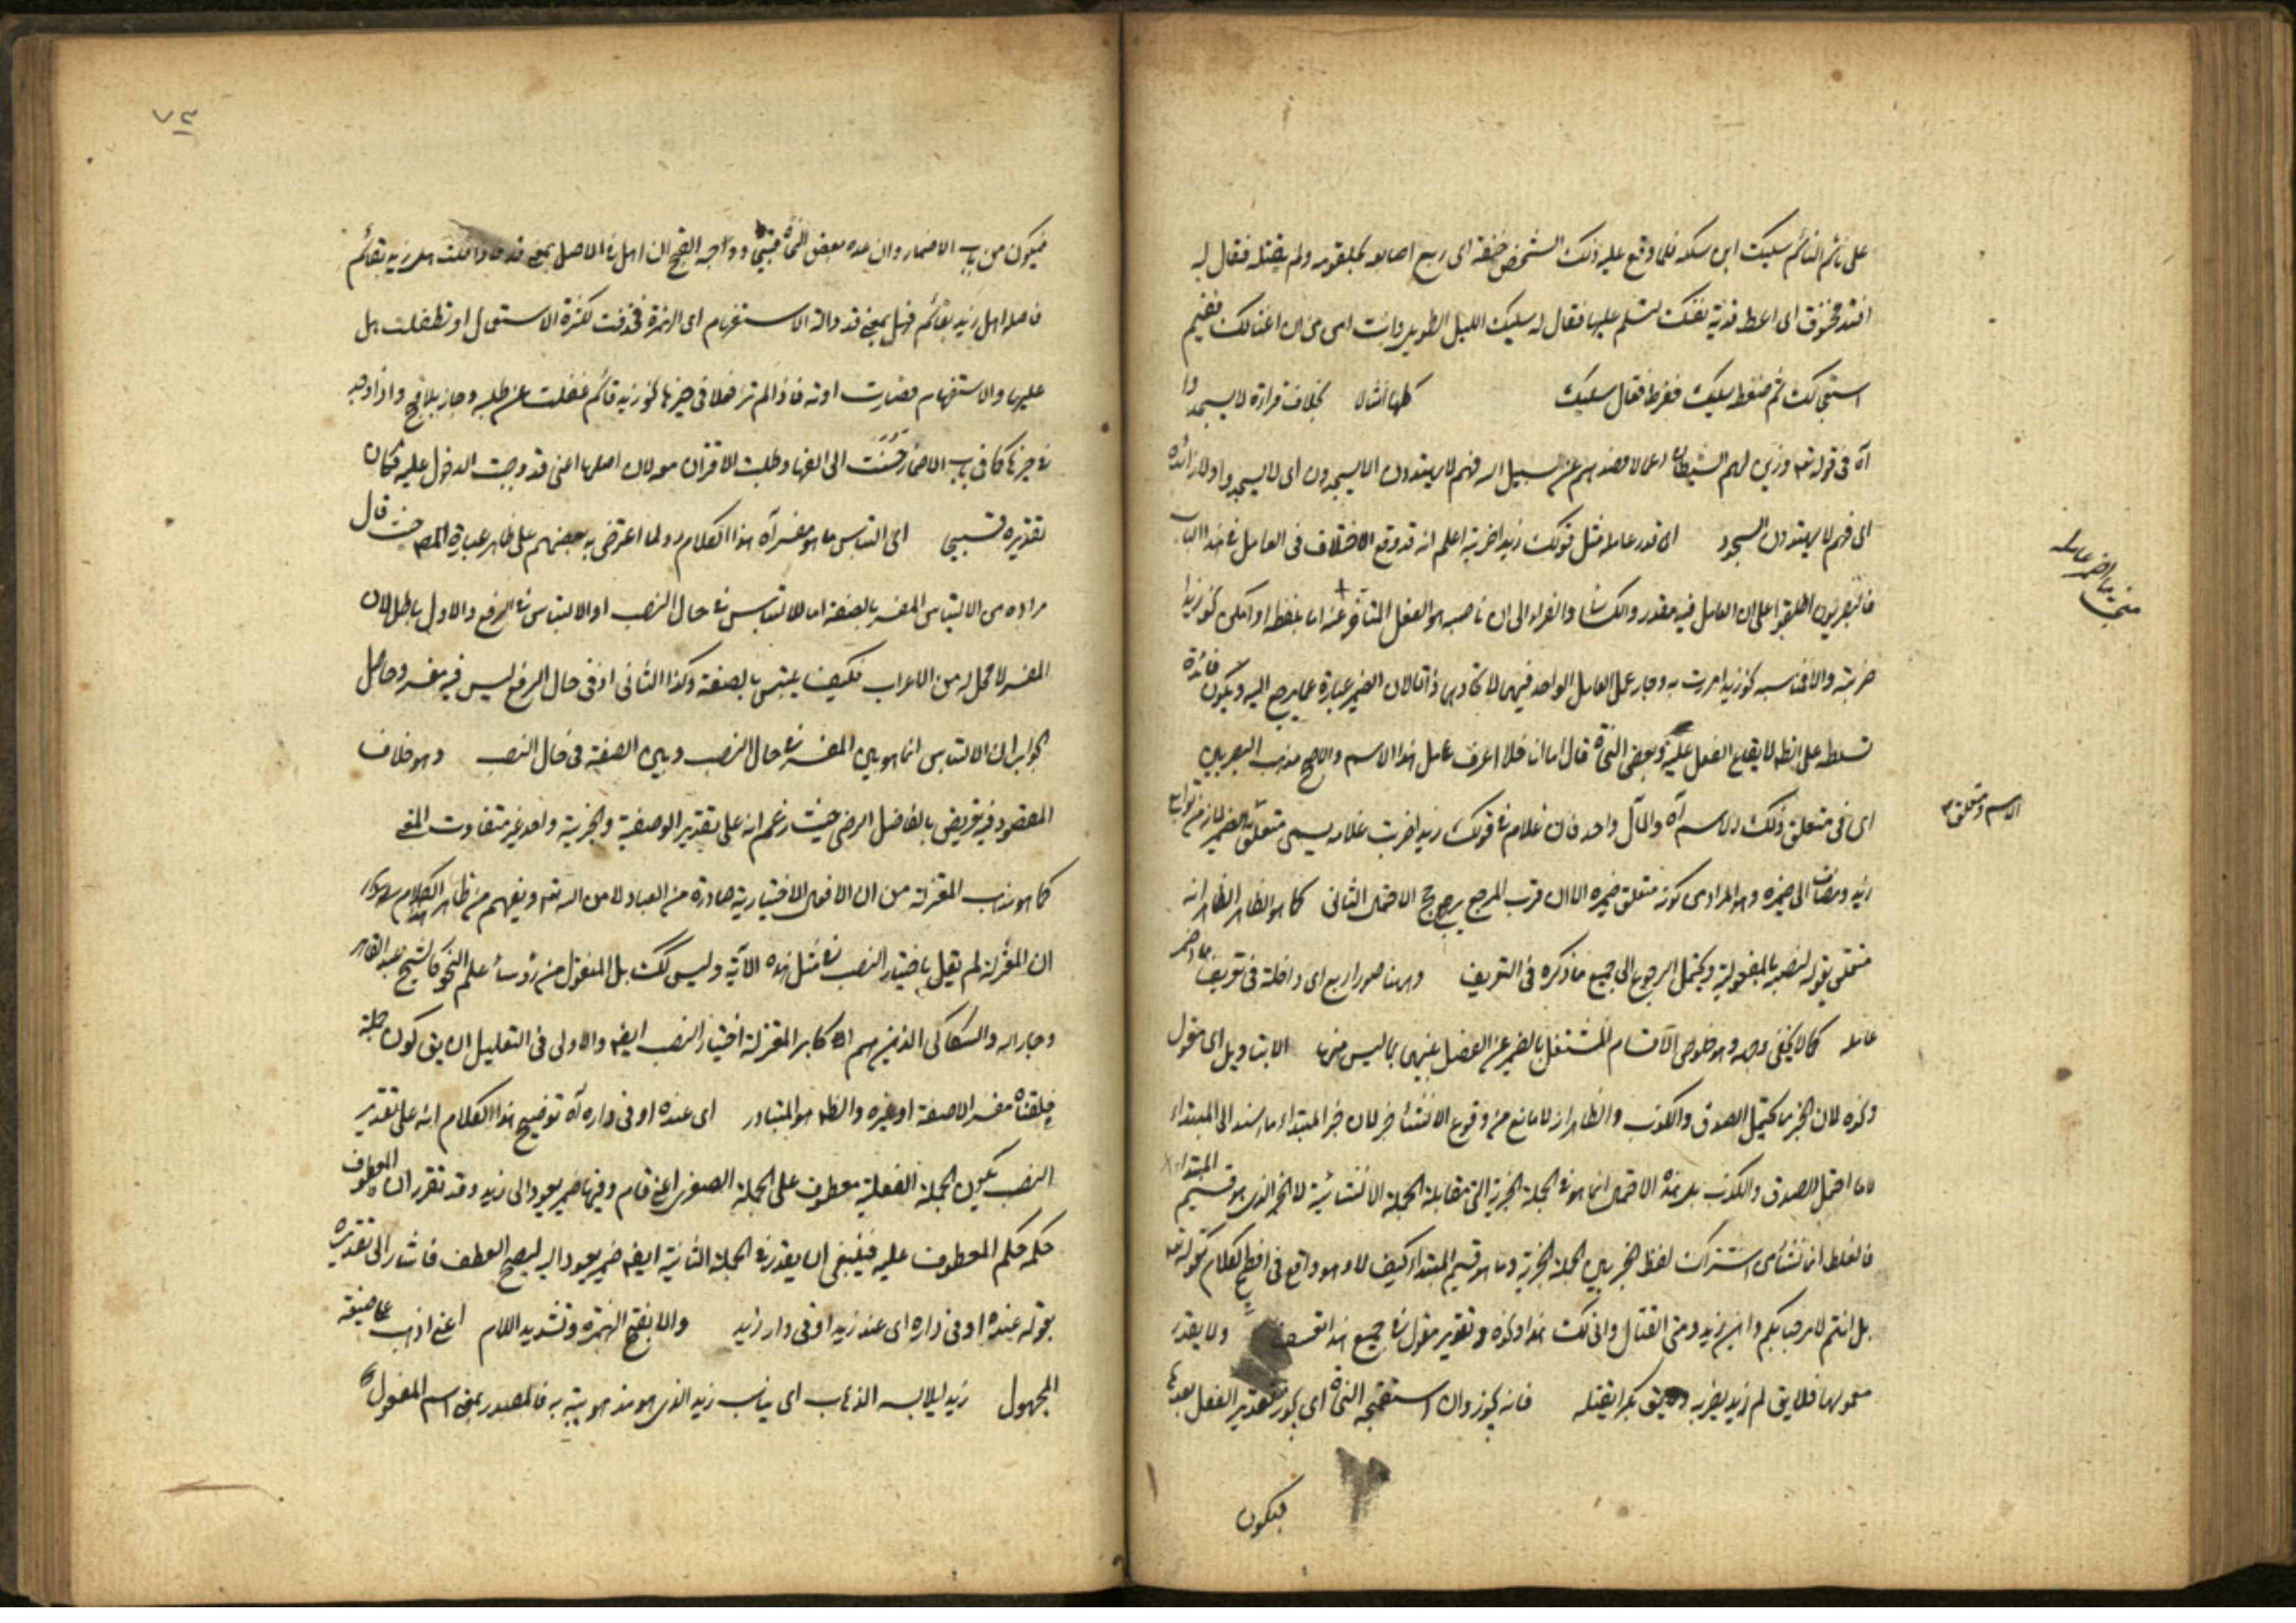 على نائم النائم سليك ابن سلكه فلما وقع عليه ذلك الشخص خنقه اى ربع اصابعه بحلقومه ولم يقتله فقال له
افتد مخنوق اى اعط فدية نفسك لتسلم عليها فقال له سليك الليل الطويل وانت
ثم ضغط سليك فضرط فقال سليك بخلاف قراءة لا يسجدوا
آه فى قوله تعه وزين لهم الشيطان اعمالهم فصدهم عن السبيل فهم لا يهتدون الا يسجدون اى لا يسجدوا ولا زائدة
اى فهم لا يهتدون السجود اى قدر عامله مثل قولك زيدا ضربته اعلم انه قد وقع الاختلاف فى العامل فى هذا الباب
فالبصريون اطبقوا على ان العامل فيه مقدر والكسائى والفراء الى ان ناصبه هو الفعل المتأخر عنه اما بلفظه نحو زيدا
ضربته والا نحو زيدا مررت به وجاز عمل العامل الواحد فيهما لاتحادهما ذاتا لان الضمير عبارة عما يرجع اليه ويكون فائدة
تسلطه على الظه لا يقاع الفعل عليه وبعض النحاة قال اما انا فلا اعرف عامل هذا الاسم والاصح مذهب البصريين
اى فى متعلق ذلك الاسم آه والمآل واحد فان غلام فى قولك زيد اضربت غلامه يسمى متعلق الضمير
زيد ومضاف الى ضميره وهو المراد من كونه متعلق ضميره الا ان قرب المرجع يرجح الاحتمال الثانى كما هو الظاهر الظاهر انه
متعلق بقوله لنصبه بالمفعولية ويحتمل الرجوع الى جميع ما ذكره فى التعريف وههنا صور اربع اى داخلة فى تعريف ما اضمر
عامله كما لا يخفى وجهه وهو خلوص الاقسام المشتغل بالضمير عن الفصل بينهما بما ليس منها الا بتاويل اى مقول
وكذه لان الخبر ما يحتمل الصدق والكذب والظاهر انه لا مانع من وقوع الانشاء خبر لان خبر المبتداء ما اسند الى المبتداء
لا ما احتمل الصدق والكذب بل هذه الاحتمال انما هو فى الجملة الخبرية التى مقابلة الجملة الانشائية لا الخبر الذى هو قسيم المبتداء
فالغلط انما نشاء من اشتراك لفظ الخبر بين الجملة الخبرية وما هو قسيم المبتداء كيف لا وهو واقع فى افصح الكلام كقوله تعه
بل انتم لا مرحبا بكم واين زيد ومتى القتال وانى لك هذا وكذه وتقدير مقول فى جميع هذا ولا يقدر
معمولها فلا يق لم زيد يضربه ولا يق بكرا يقتله فانه يجوز وان استقبحه النحاة اى يجوز تقدير الفعل بعدها
فيكون
الاسم ومتعلقه
٧٣
فيكون من باب الاضمار وان عده بعض النحاة قبيحا ووجه القبح ان اهل فى الاصل بمعنى قد فاذا قلت هل زيد بقائم
فاصله اهل زيد بقائم فهل بمعنى قد دالة الاستفهام اى الهمزة فحذفت لكثرة الاستعمال او تطفلت هل
عليها والاستفهام فصارت فاذا لم تر فعلا فى حيزها نحو زيد قائم غفلت عن طلبه وجاز بلا قبح واذا وجد
فى حيزها كما فى باب الاضمار حنت الى الفها وطلبت الاقتران معه لان اصلها اعنى قد وجبت الدخول عليه فكان
تقديره قبيحا اى التباس ما هو مفسر آه هذا الكلام رد لما اعترض به بعضهم على ظاهر عبارة المص حيث قال
مراده من الالتباس المفسر بالصفة اما الالتباس فى حال النصب او الالتباس فى الرفع والاول باطل لان
المفسر لا محل له من الاعراب فكيف يلتبس بالصفة وكذا الثانى اذ فى حال الرفع ليس فيه مفسر وحاصل
الجواب ان الالتباس انما هو بين المفسر فى حال النصب وبين الصفة فى حال النصب وهو خلاف
المقصود فيه تعريض بالفاضل الرضى حيث زعم انه على تقدير الوصفية والخبرية واحد غير متفاوت المعنى
كما هو مذهب المعتزلة من ان الافعال الاختيارية صادرة من العباد لا من الله تعه ويفهم من ظاهر الكلام
ان المعتزلة لم تقل باختيار النصب فى مثل هذه الآية وليس كك بل المنقول من رؤساء علم النحو كالشيخ عبد القاهر
وجار الله والسكاكى الذين هم اكابر المعتزلة اختيار النصب ايضه والاولى فى التعليل ان يق كون جملة
خلقناه مفسر الا صفة او غيره والظه هو المتبادر اى عنده او فى داره آه توضيح هذا الكلام انه على تقدير
النصب يكون الجملة الفعلية معطوف على الجملة الصغرى اعنى قام وفيها ضمير يعود الى زيد وقد تقرر ان المعطوف
حكمه حكم المعطوف عليه فينبغى ان يقدر فى الجملة الثانية ايضه ضمير يعود اليه ليصح العطف فاشار الى تقديره
بقوله عنده او فى داره اى عند زيد او فى دار زيد والا بفتح الهمزة وتشديد اللام اعنى اذهب على صيغة
المجهول زيد يلابسه الذهاب اى يناسب زيد الذى هو به فالمصدر بمعنى اسم المفعول